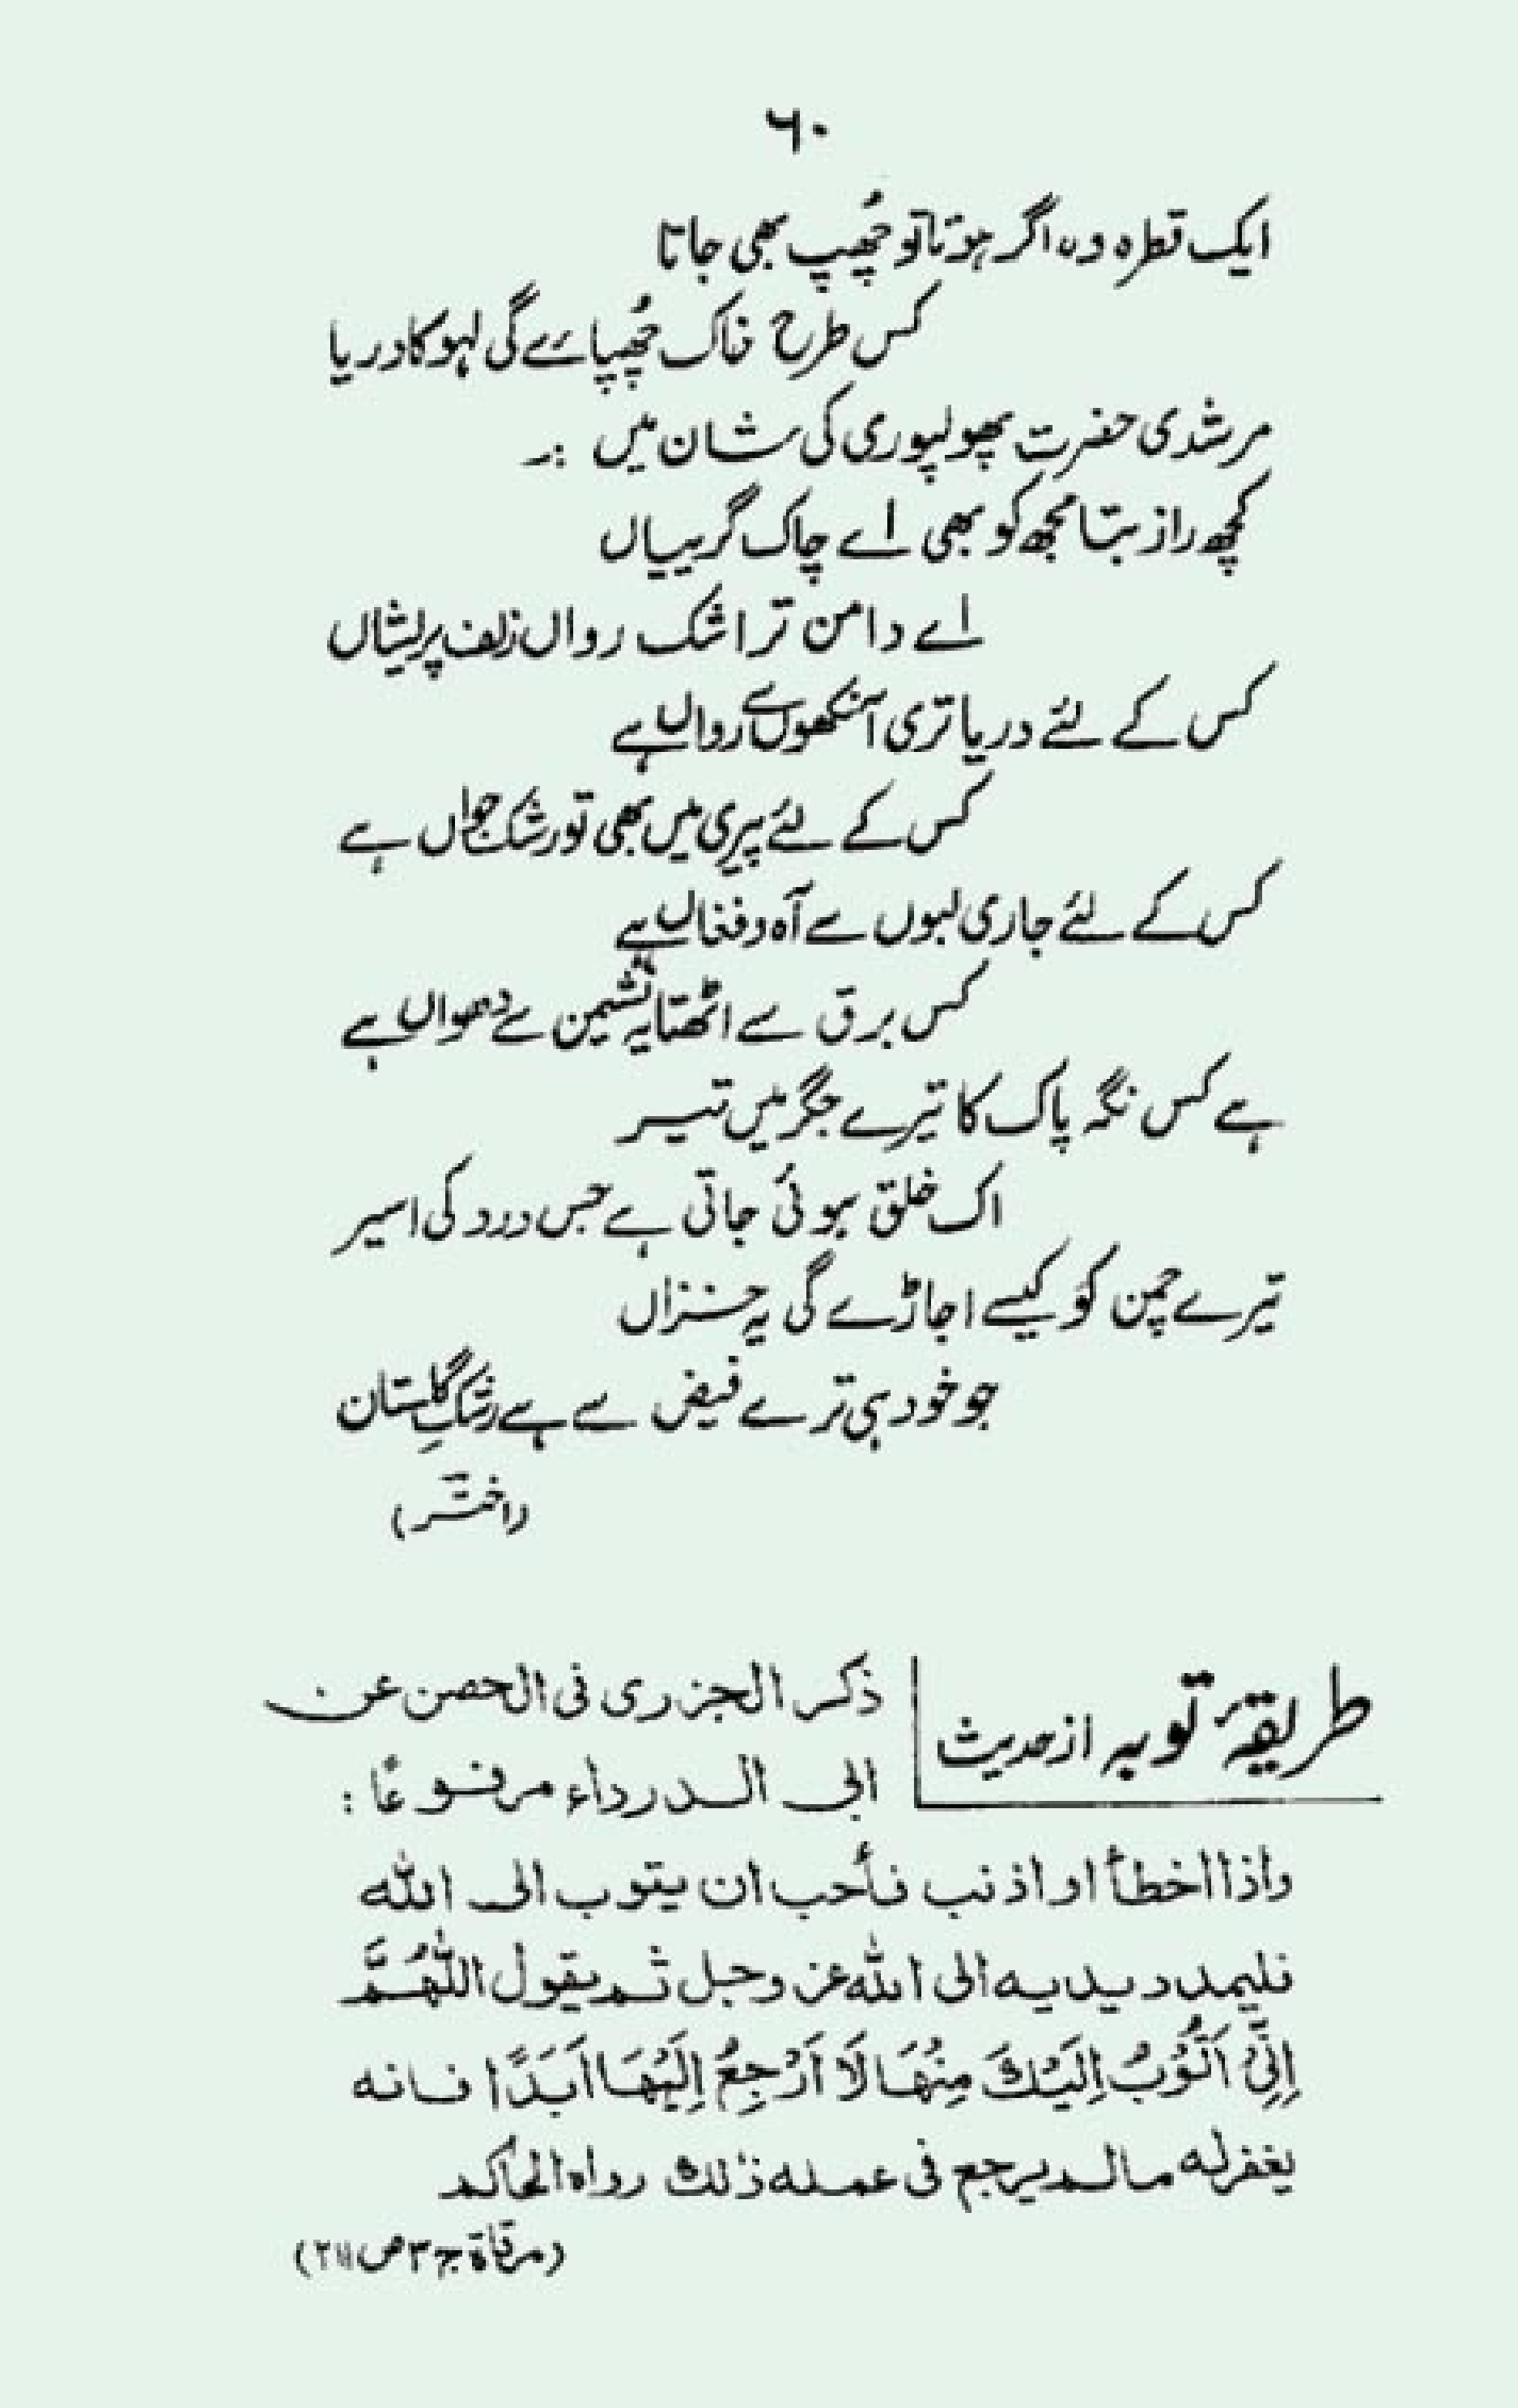 ۶۰
ایک قطرہ وہ اگر ہوتا تو چُھپ بھی جاتا
کس طرح خاک چُھپاے گی لہو کا دریا
مرشدی حضرت پھولپوری کی شان میں :۔
کچھ راز بتا مجھ کو بھی اے چاک گریباں
اے دامن تر اشک رواں زلف پریشاں
کس کے لئے دریا تری آنکھوں سے رواں ہے
کس کے لئے پیری میں بھی تو رشک جواں ہے
کس کے لئے جاری لبوں سے آہ و فغاں ہے
کس برق سے اٹھتا یہ نشیمن سے دھواں ہے
ہے کس نگہ پاک کا تیرے جگر میں تیر
اک خلق ہوئی جاتی ہے جس درد کی اسیر
تیرے چمن کو کیسے اجاڑے گی یہ خزاں
جو خود ہی ترے فیض سے ہے رشکِ گلستان
(اختر)
طریقۂ توبہ از حدیث
ذکر الجزری فی الحصن عن
ابی الدرداء مرفوعًا :
واذا اخطأ او اذنب فأحب ان یتوب الی اللہ
فلیمدد یدیہ الی اللہ عز وجل ثم یقول اللّٰهُمَّ
اِنِّیْ اَتُوْبُ اِلَیْكَ مِنْهَا لَا اَرْجِعُ اِلَیْهَا اَبَدًا فانه
یغفر له مالم یرجع فی عمله ذٰلك رواه الحاکم
(مرقاة ج ۳ ص ۲۱۱)